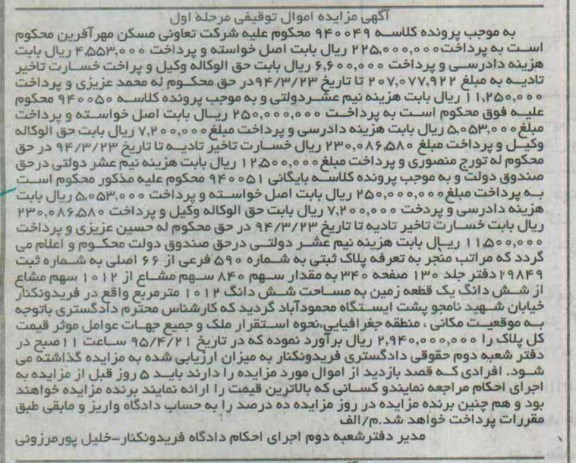 آگهی مزایده اموال توقیفی مرحله اول
به موجب پرونده کلاسه ۹۴۰۰۴۹ محکوم علیه شرکت تعاونی مسکن مهرآفرین محکوم
است به پرداخت ۲۲۵,۰۰۰,۰۰۰ ریال بابت اصل خواسته و پرداخت ۴,۵۵۳,۰۰۰ ریال بابت
هزینه دادرسی و پرداخت ۶,۶۰۰,۰۰۰ ریال بابت حق الوکاله وکیل و پراخت خسارت تاخیر
تادیه به مبلغ ۲۰۷,۰۷۷,۹۲۲ تا تاریخ ۹۴/۳/۲۳در حق محکوم له محمد عزیزی و پرداخت
۱۱,۲۵۰,۰۰۰ ریال بابت هزینه نیم عشردولتی و به موجب پرونده کلاسه ۹۴۰۰۵۰ محکوم
علیه فوق محکوم است به پرداخت ۲۵۰,۰۰۰,۰۰۰ ریال بابت اصل خواسته و پرداخت
مبلغ۵,۰۵۳,۰۰۰ ریال بابت هزینه دادرسی و پرداخت مبلغ۷,۲۰۰,۰۰۰ ریال بابت حق الوکاله
وکیل و پرداخت مبلغ ۲۳۰,۰۸۶,۵۸۰ ریال خسارت تاخیر تادیه تا تاریخ ۹۴/۳/۲۳ در حق
محکوم له تورج منصوری و پرداخت مبلغ۱۲,۵۰۰,۰۰۰ ریال بابت هزینه نیم عشر دولتی درحق
صندوق دولت و به موجب پرونده کلاسه بایگانی ۹۴۰۰۵۱ محکوم علیه مذکور محکوم است
به پرداخت مبلغ۲۵۰,۰۰۰,۰۰۰ ریال بابت اصل خواسته و پرداخت ۵,۰۵۳,۰۰۰ ریال بابت
هزینه دادرسی و پردخت ۷,۲۰۰,۰۰۰ ریال بابت حق الوکاله وکیل و پرداخت ۲۳۰,۰۸۶,۵۸۰
ریال بابت خسارت تاخیر تادیه تا تاریخ ۹۴/۳/۲۳ در حق محکوم له حسین عزیزی و پرداخت
۱۱,۵۰۰,۰۰۰ ریال بابت هزینه نیم عشر دولتی درحق صندوق دولت محکوم و اعلام می
گردد که مراتب منجر به تعرفه پلاک ثبتی به شماره ۵۹۰ فرعی از ۶۶ اصلی به شماره ثبت
۲۹۸۴۹دفتر جلد ۱۳۰ صفحه ۳۴۰ به مقدار سهم ۸۴۰ سهم مشاع از ۱۰۱۲ سهم مشاع
از شش دانگ یک قطعه زمین به مساحت شش دانگ ۱۰۱۲ مترمربع واقع در فریدونکنار
خیابان شهید نامجو پشت ایستگاه محمودآباد گردید که کارشناس محترم دادگستری باتوجه
به موقعیت مکانی ، منطقه جغرافیایی،نحوه استقرار ملک و جمیع جهات عوامل موثر قیمت
کل پلاک را ۲,۹۴۰,۰۰۰,۰۰۰ ریال برآورد نموده که در تاریخ ۹۵/۴/۲۱ ساعت ۱۱صبح در
دفتر شعبه دوم حقوقی دادگستری فریدونکنار به میزان ارزیابی شده به مزایده گذاشته می
شود. افرادی که قصد بازدید از اموال مورد مزایده را دارند باید ۵ روز قبل از مزایده به
اجرای احکام مراجعه نمایندو کسانی که بالاترین قیمت را ارائه نمایند برنده مزایده خواهند
بود و هم چنین برنده مزایده در روز مزایده ده درصد را به حساب دادگاه واریز و مابقی طبق
مقررات پرداخت خواهد شد.م/الف
مدیر دفترشعبه دوم اجرای احکام دادگاه فریدونکنار–خلیل پورمرزونی